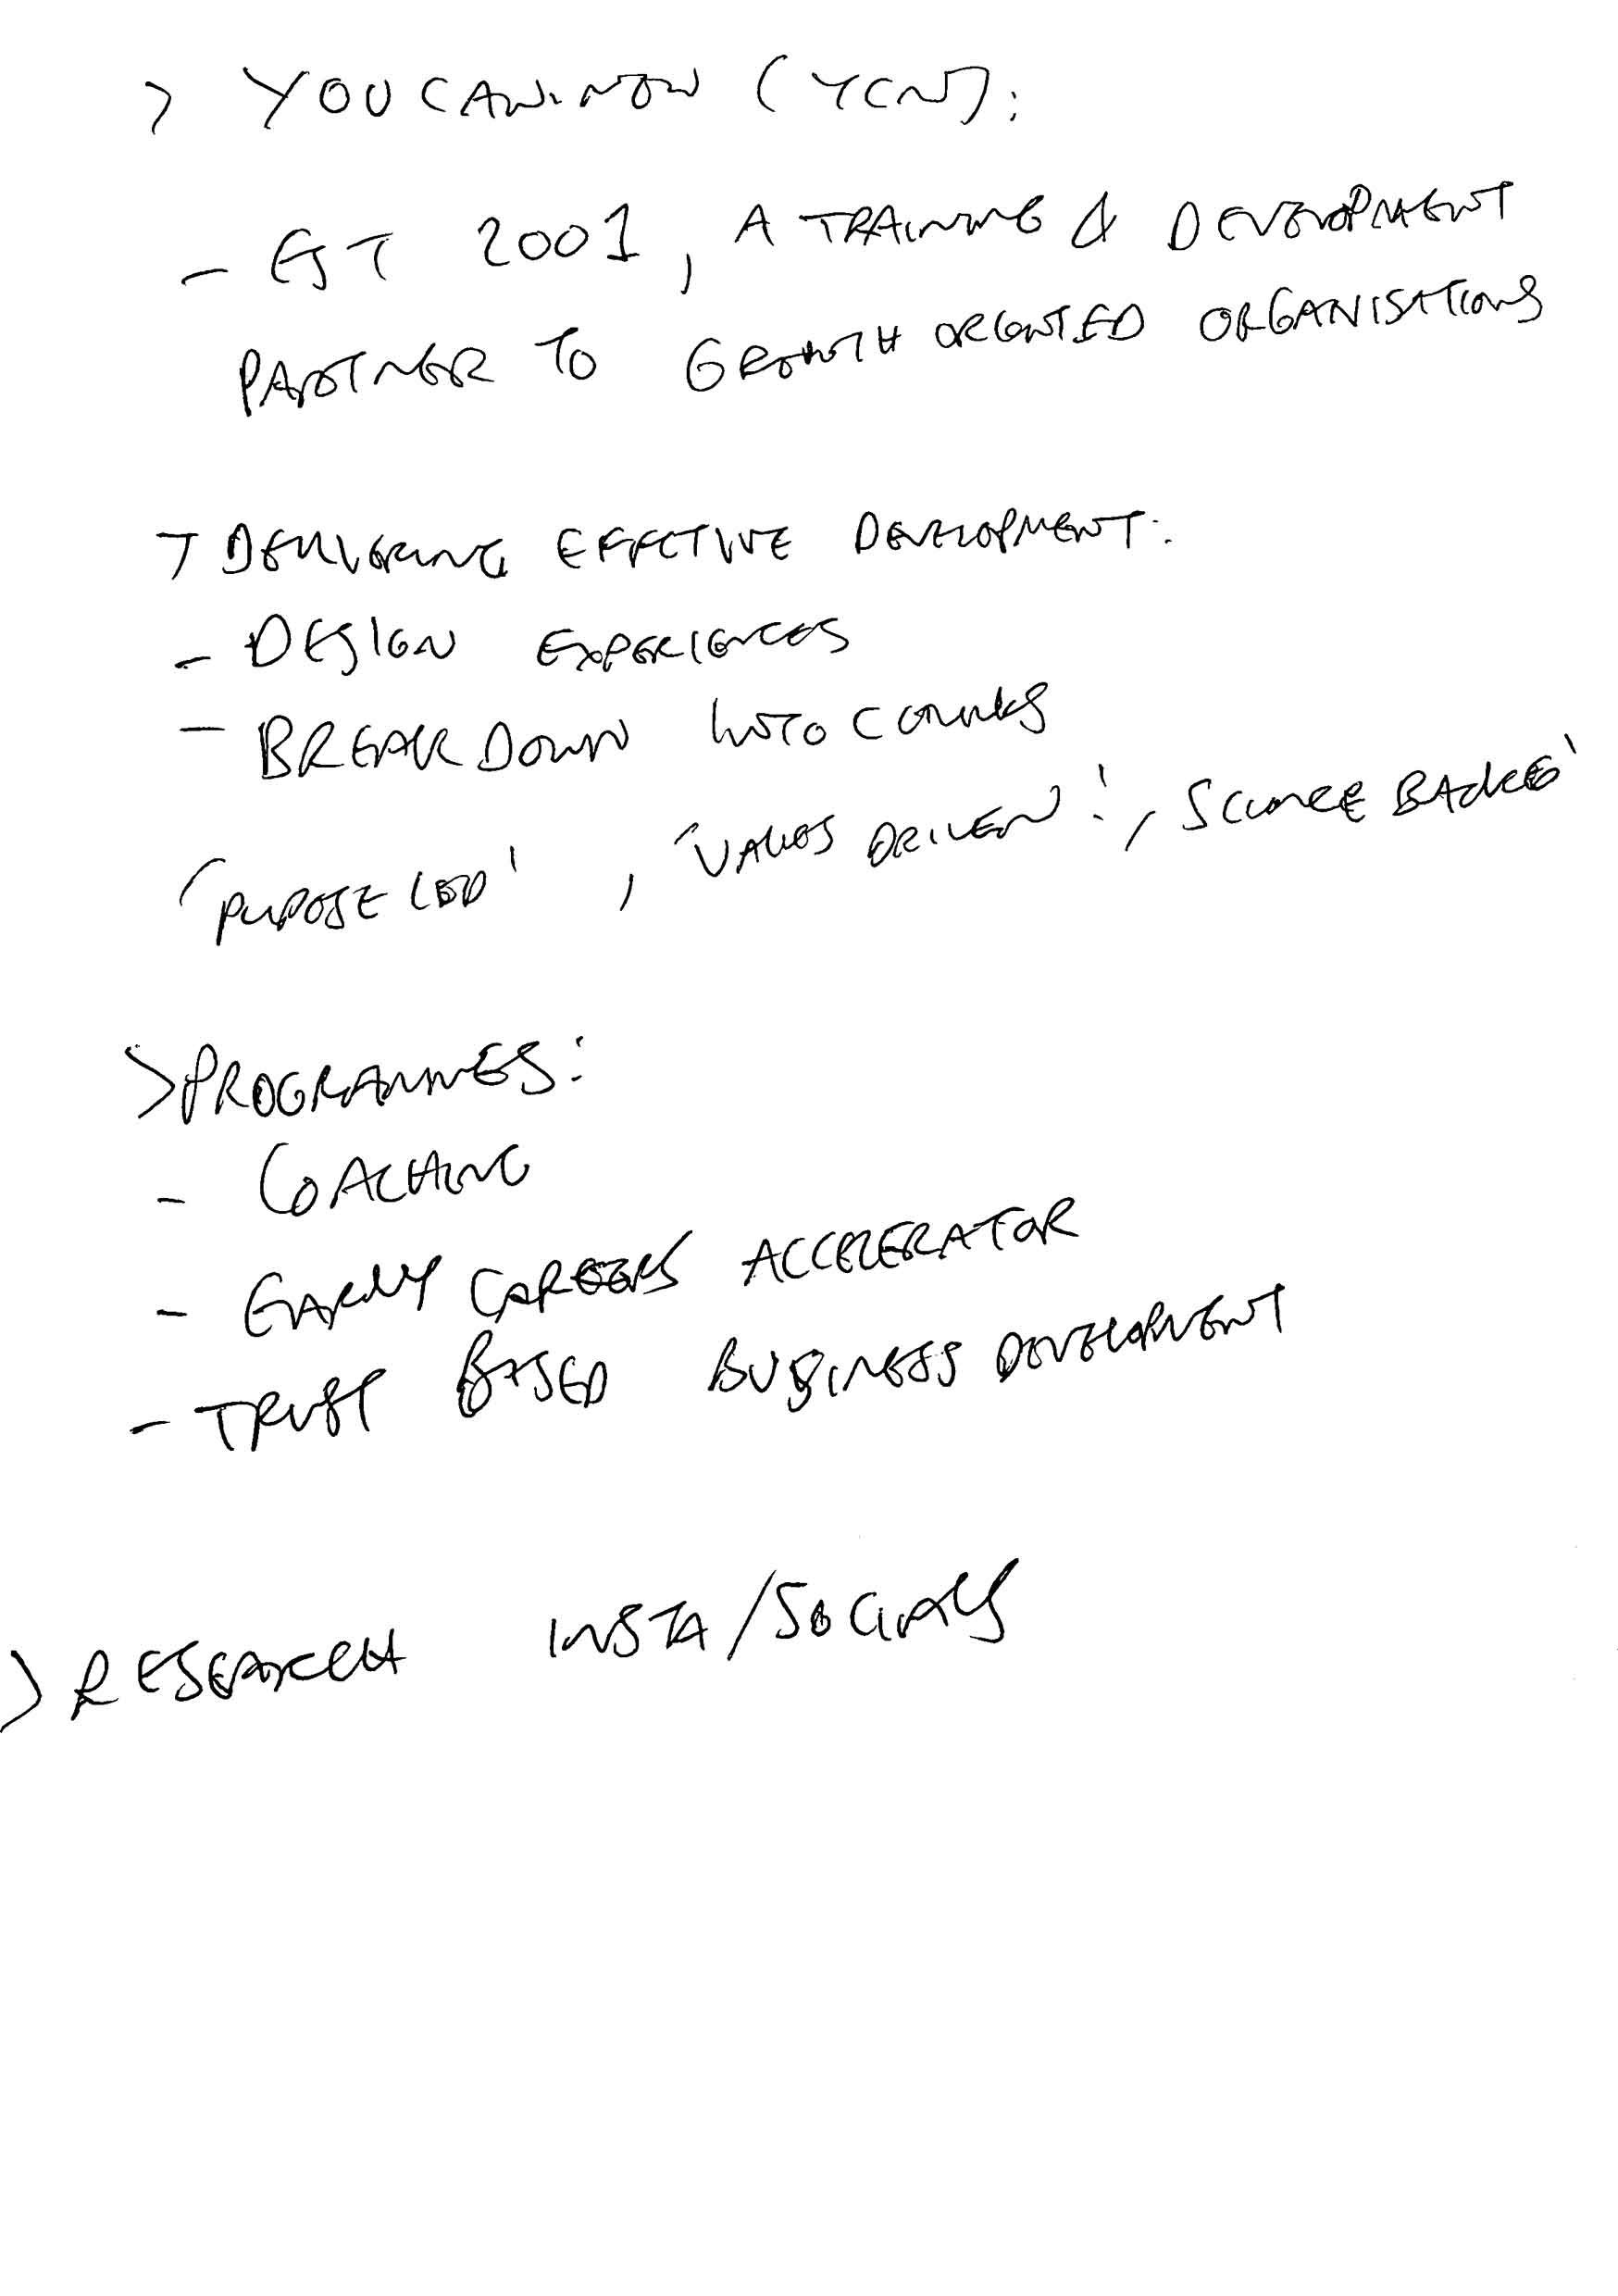 > YOUCAN.NOW (YCN):
- EST 2001, A TRAINING & DEVELOPMENT
PARTNER TO GROWTH ORIENTED ORGANISATIONS
> DELIVERING EFFECTIVE DEVELOPMENT:
- DESIGN EXPERIENCES
- BREAK DOWN INTO CHUNKS
'PUPOSE LED', 'VALUES DRIVEN', 'SCIENCE BACKED'
> PROGRAMMES:
- COACHING
- EARLY CAREERS ACCELERATOR
- TRUST BASED BUSINESS DEVELOPMENT
> RESEARCH INSTA/SOCIALS